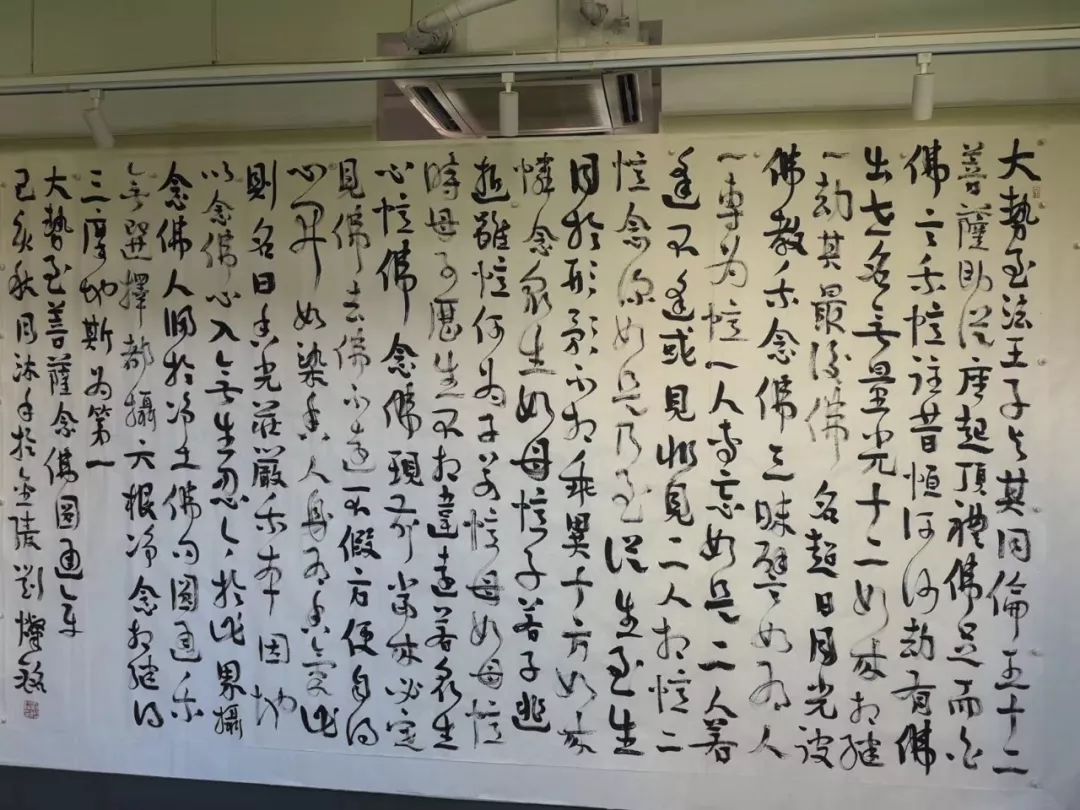 大勢至法王子與其同倫五十二
菩薩即從座起頂禮佛足而白
佛言我憶往昔恒河沙劫有佛
出世名無量光十二如來相繼
一劫其最後佛名超日月光彼
佛教我念佛三昧譬如有人
一專為憶一人專忘如是二人若
逢不逢或見非見二人相憶二
憶念深如是乃至從生至生
同於形影不相乖異十方如來
憐念眾生如母憶子若子逃
逝雖憶何為子若憶母如母憶
時母子歷生不相違遠若眾生
心憶佛念佛現前當來必定
見佛去佛不遠不假方便自得
心開如染香人身有香氣此
則名曰香光莊嚴我本因地
以念佛心入無生忍今於此界攝
念佛人歸於淨土佛問圓通我
無選擇都攝六根淨念相繼得
三摩地斯為第一
大勢至菩薩念佛圓通章
己亥秋月沐手於金陵劉燦銘